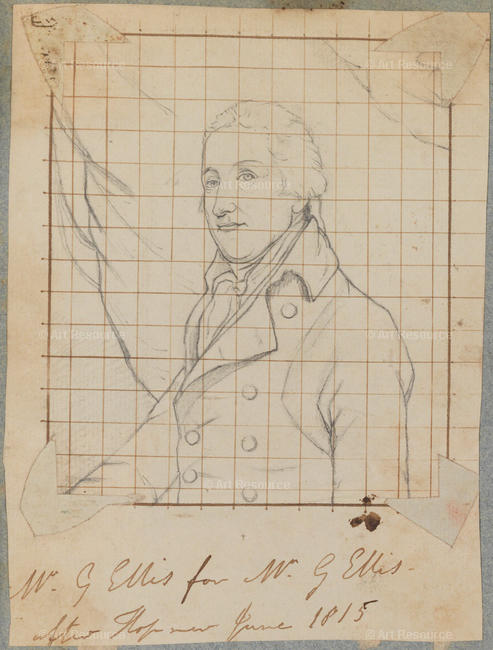 Mr. G Ellis for Mr. G Ellis.
after Hopner June 1815
© Art Resource
© Art Resource
© Art Resource
© Art Resource
© Art Resource
© Art Resource
© Art Resource
© Art Resource